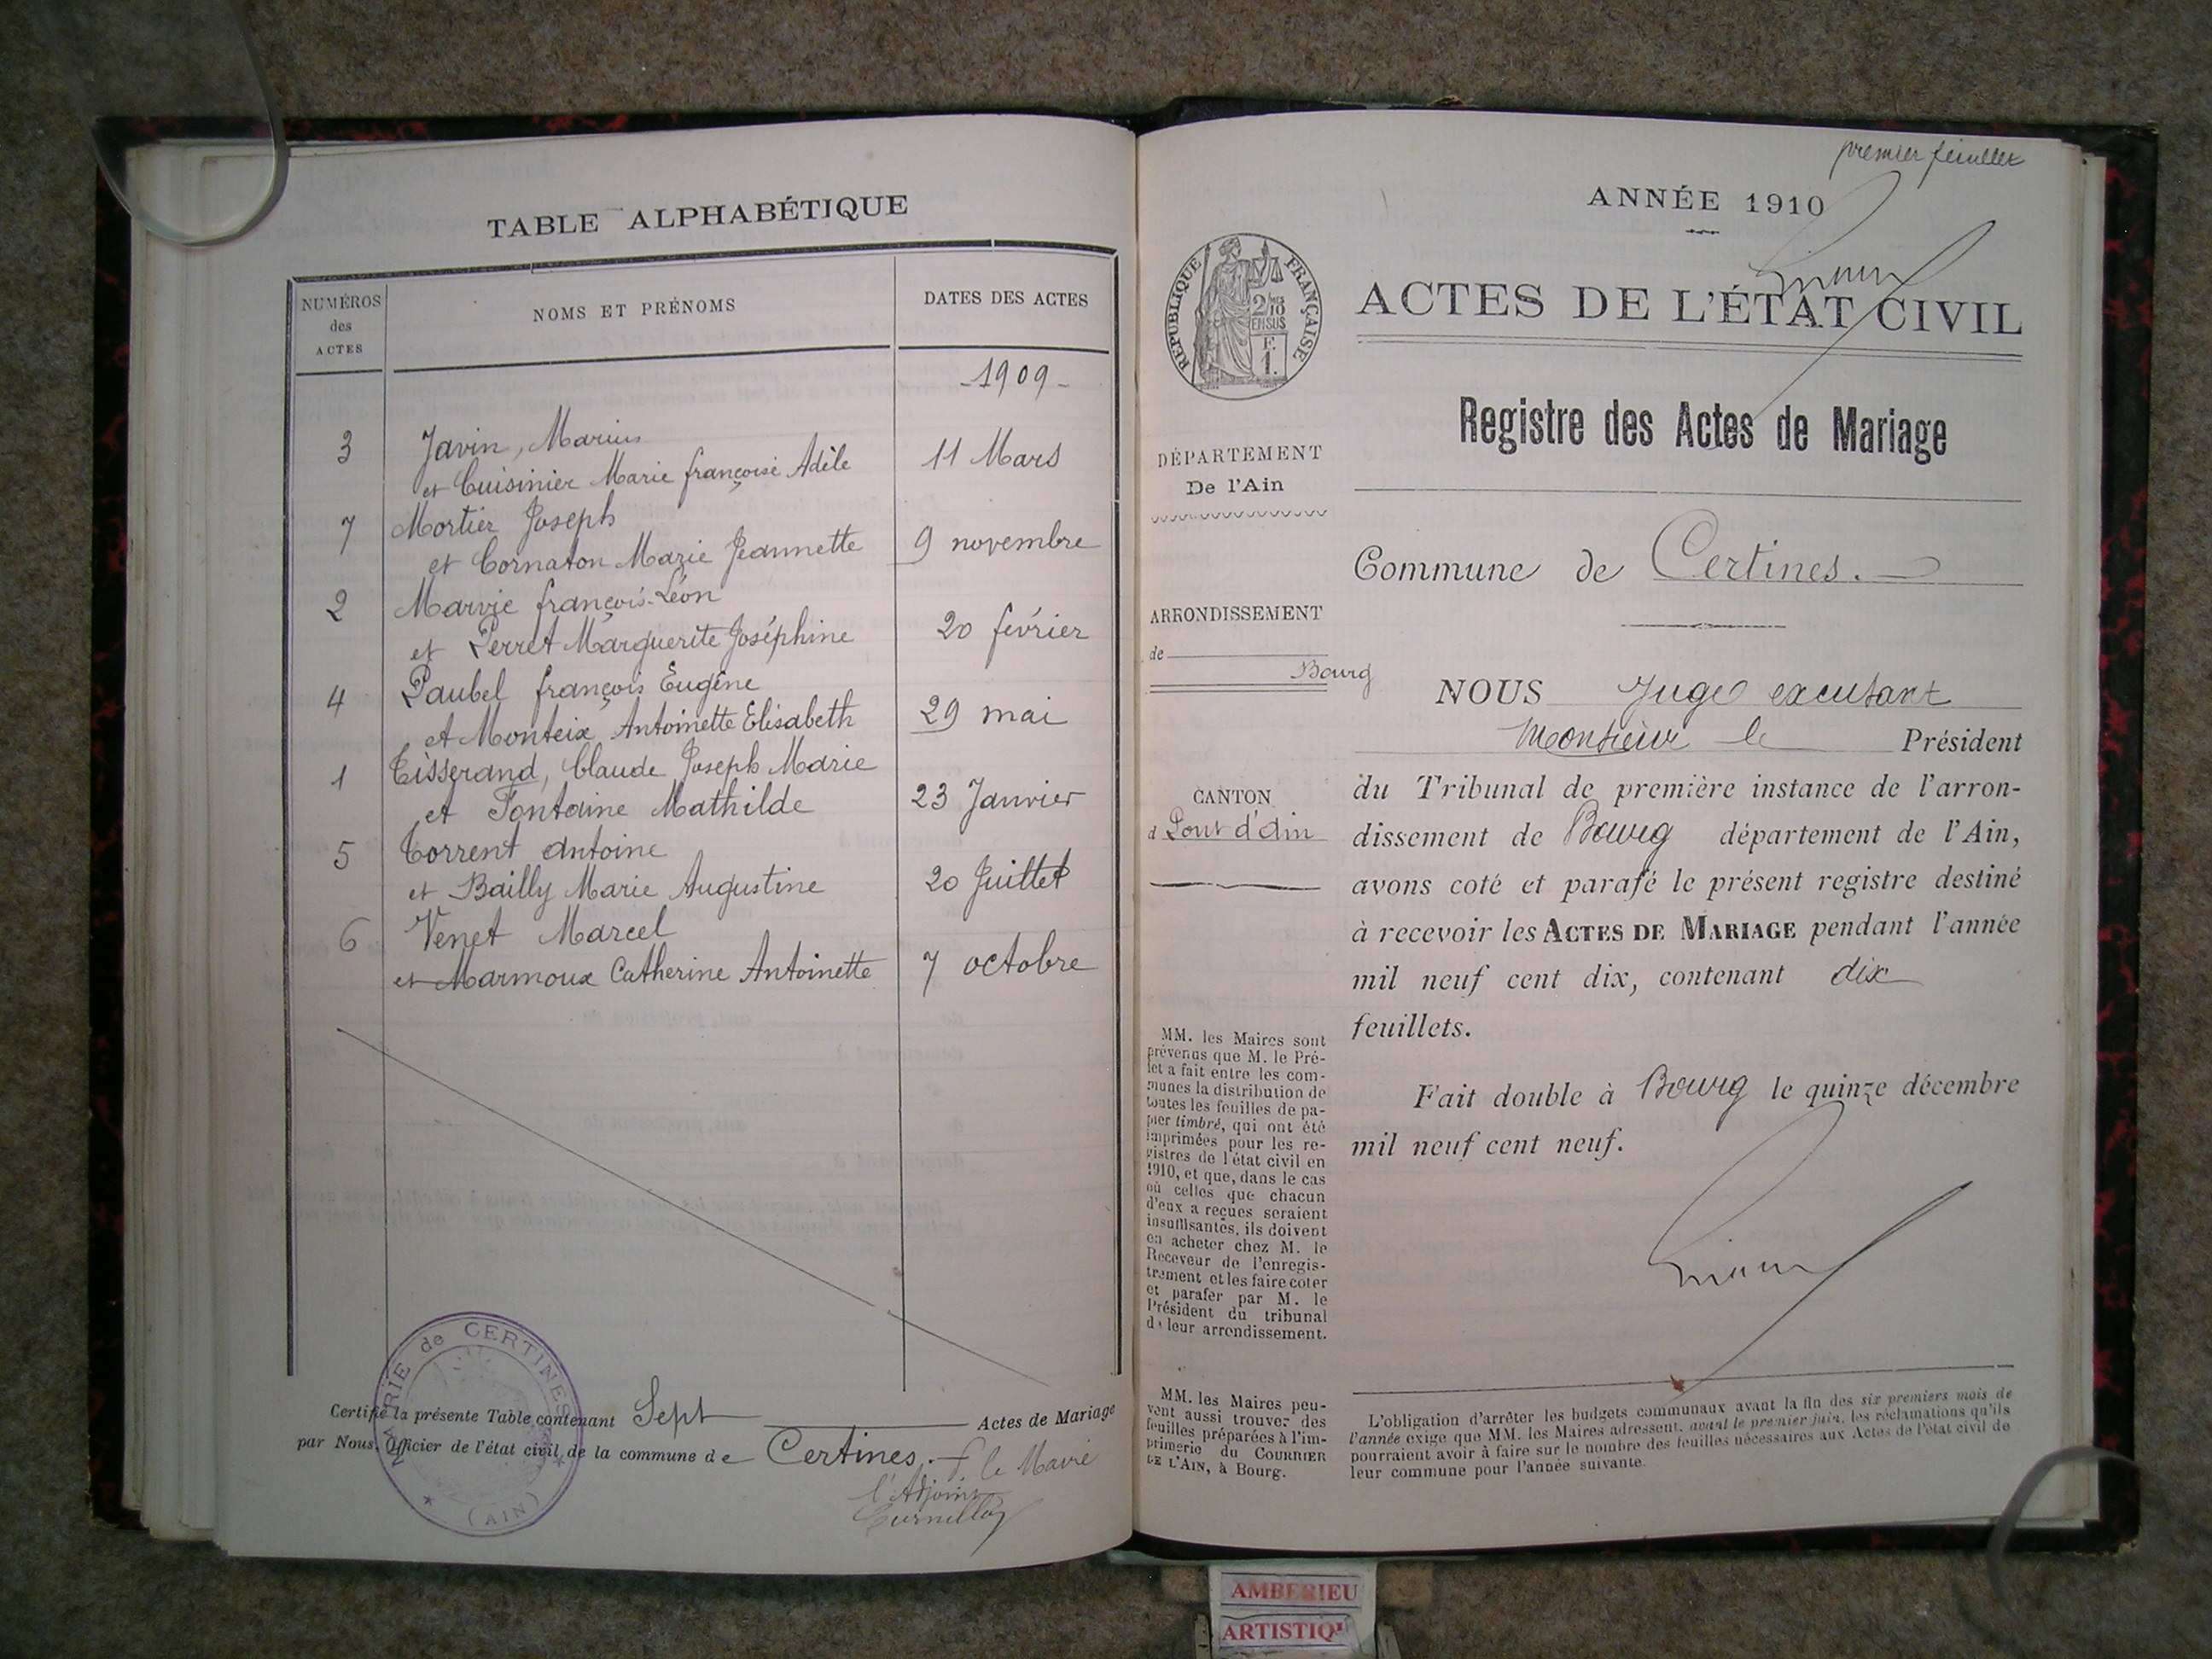 TABLE ALPHABÉTIQUE
NUMÉROS
des
ACTES
NOMS ET PRÉNOMS
DATES DES ACTES
-1909-
3 Javin, Marius
et Cuisinier Marie françoise Adèle 11 Mars
7 Mortier Joseph
et Cornaton Marie Jeannette 9 novembre
2 Marvie françois-Léon
et Perret Marguerite Joséphine 20 février
4 Paubel françois Eugène
et Monteix Antoinette Elisabeth 29 mai
1 Tisserand, Claude Joseph Marie
et Fontaine Mathilde 23 Janvier
5 Torrent Antoine
et Bailly Marie Augustine 20 Juillet
6 Venet Marcel
et Marmoux Catherine Antoinette 7 octobre
MAIRIE de CERTINES
(AIN)
Certifié la présente Table contenant Sept Actes de Mariage
par Nous, Officier de l'état civil de la commune de Certines.
le Maire
l'Adjoint
premier feuillet
ANNÉE 1910
RÉPUBLIQUE FRANÇAISE
2/10
EN SUS
F.
1.
ACTES DE L'ÉTAT CIVIL
Registre des Actes de Mariage
DÉPARTEMENT
De l'Ain
Commune de Certines.
ARRONDISSEMENT
de
Bourg
NOUS Juge
Monsieur le Président
du Tribunal de première instance de l'arron-
CANTON
d Pont d'Ain
dissement de Bourg département de l'Ain,
avons coté et parafé le présent registre destiné
à recevoir les ACTES DE MARIAGE pendant l'année
mil neuf cent dix, contenant dix
feuillets.
Fait double à Bourg le quinze décembre
mil neuf cent neuf.
MM. les Maires sont
prévenus que M. le Pré-
fet a fait entre les com-
munes la distribution de
toutes les feuilles de pa-
pier timbré, qui ont été
imprimées pour les re-
gistres de l'état civil en
1910, et que, dans le cas
où celles que chacun
d'eux a reçues seraient
insuffisantes, ils doivent
en acheter chez M. le
Receveur de l'enregis-
trement et les faire coter
et parafer par M. le
Président du tribunal
de leur arrondissement.
MM. les Maires peu-
vent aussi trouver des
feuilles préparées à l'im-
primerie du COURRIER
DE L'AIN, à Bourg.
L'obligation d'arrêter les budgets communaux avant la fin des six premiers mois de
l'année exige que MM. les Maires adressent, avant le premier juin, les réclamations qu'ils
pourraient avoir à faire sur le nombre des feuilles nécessaires aux Actes de l'état civil de
leur commune pour l'année suivante.
AMBERIEU
ARTISTIQ